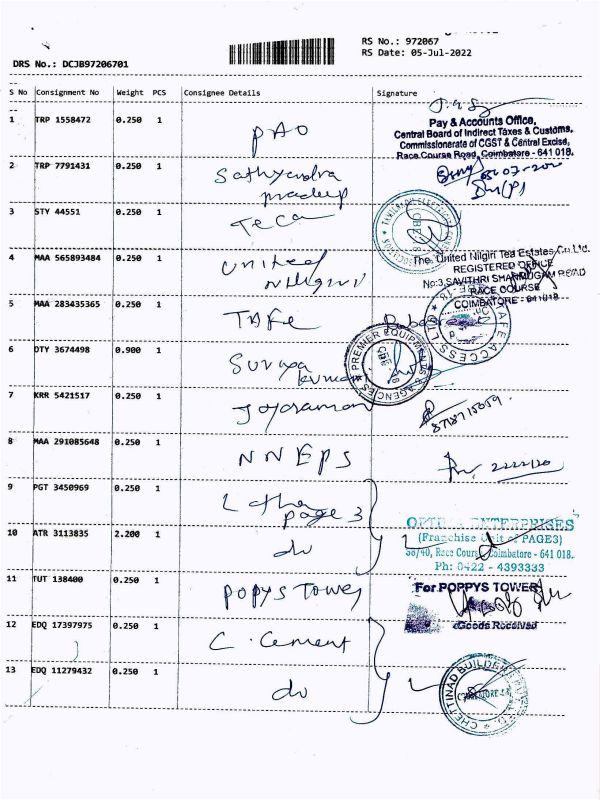 RS No.: 972067
RS Date: 05-Jul-2022
DRS No.: DCJB97206701
S No Consignment No Weight PCS Consignee Details Signature
1 TRP 1558472 0.250 1 PAO
Pay & Accounts Office,
Central Board of Indirect Taxes & Customs,
Commissionerate of CGST & Central Excise,
Race Course Road, Coimbatore - 641 018.
2 TRP 7791431 0.250 1 Sathyendra
pradeep
3 STY 44551 0.250 1 Teca
4 MAA 565893484 0.250 1 United
Nilgiri
The United Nilgiri Tea Estates Co.Ltd.
REGISTERED OFFICE
No:3, SAVITHRI SHANMUGAM ROAD
RACE COURSE
COIMBATORE - 641 018
5 MAA 283435365 0.250 1 TAFE
TAFE ACCESS LTD
6 DTY 3674498 0.900 1 Suriya
kumar
PREMIER EQUIPMENTS & AGENCIES
7 KRR 5421517 0.250 1 Jayaraman
8 MAA 291085648 0.250 1 NNEPS
9 PGT 3450969 0.250 1 Latha
page 3
ENTERPRISES
(Franchise Unit of PAGE3)
38/40, Race Course, Coimbatore - 641 018.
Ph: 0422 - 4393333
10 ATR 3113835 2.200 1 do
11 TUT 138400 0.250 1 POPYS Tower
For POPPYS TOWER
Goods Received
12 EDQ 17397975 0.250 1 C. Cement
13 EDQ 11279432 0.250 1 do
CHETTINAD BUILDERS